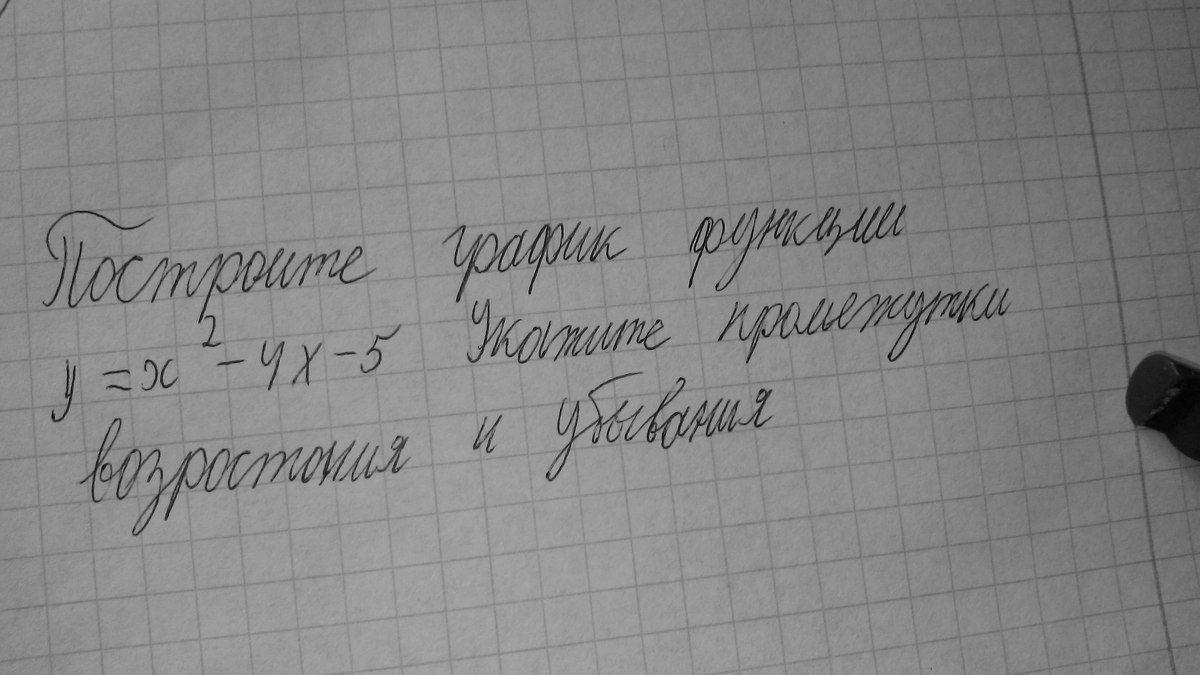 Постройте график функции
y = x² - 4x - 5 Укажите промежутки
возростания и убывания